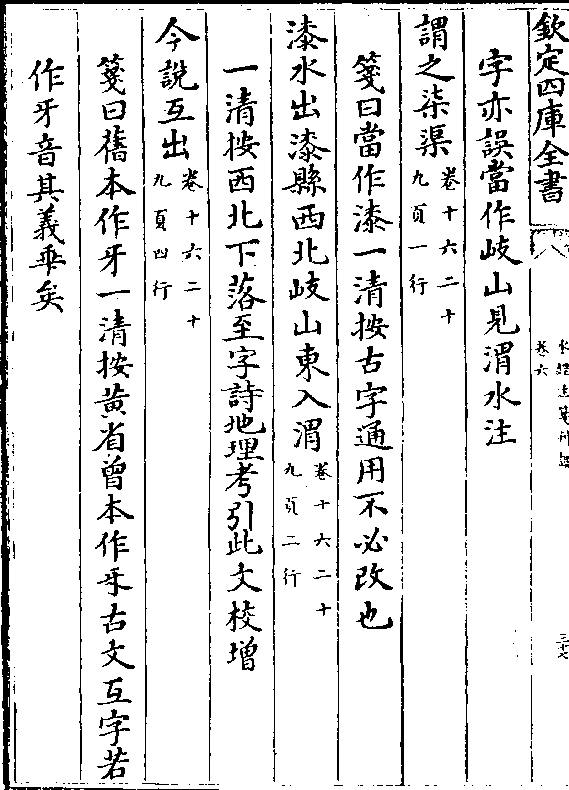 欽定四庫全書
水經注箋刊誤
卷六
三十七
字亦誤當作岐山見渭水注
謂之柒渠
卷十六二十
九頁一行
箋曰當作漆一清按古字通用不必改也
漆水出漆縣西北岐山東入渭
卷十六二十
九頁二行
一清按西北下落至字詩地理考引此文校增
今說互出
卷十六二十
九頁四行
箋曰舊本作牙一清按黃省曾本作㸦古文互字若
作牙音其義乖矣